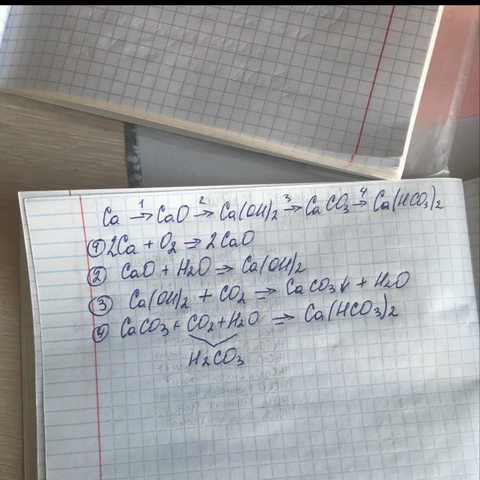 Ca →¹ CaO →² Ca(OH)₂ →³ CaCO₃ →⁴ Ca(HCO₃)₂
① 2Ca + O₂ → 2CaO
② CaO + H₂O ⇒ Ca(OH)₂
③ Ca(OH)₂ + CO₂ ⇒ CaCO₃↓ + H₂O
④ CaCO₃ + CO₂ + H₂O ⇒ Ca(HCO₃)₂
H₂CO₃